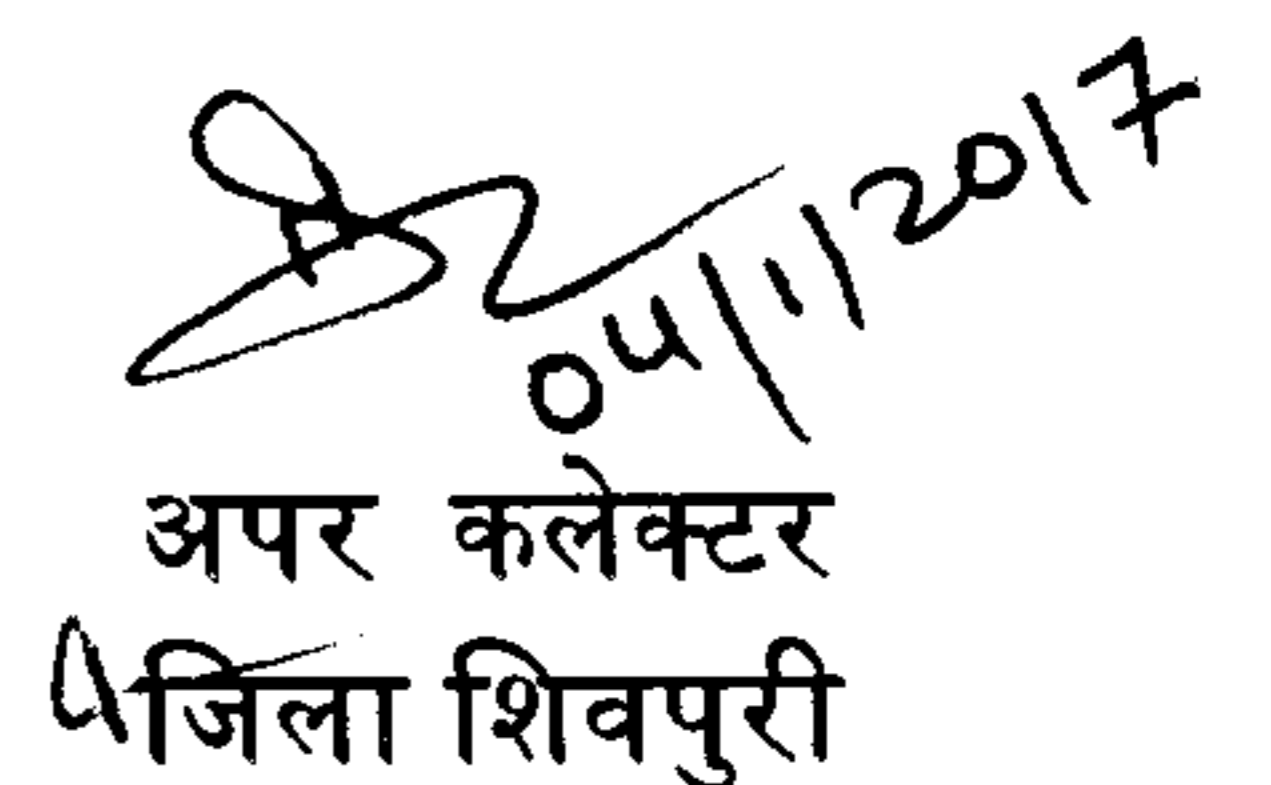 04/1/2017
अपर कलेक्टर
जिला शिवपुरी